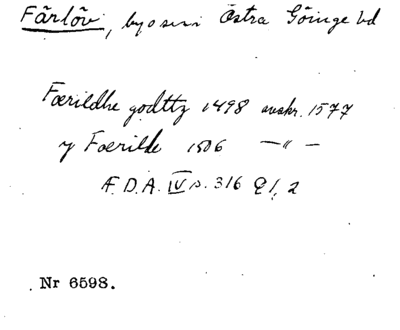 Färlöv, by o sn i Östra Göinge hd
Foerildhe godttz 1498 avskr. 1577
y Foerilde 1506 —"—
Æ.D.A. IV s. 316 Q 1, 2
Nr 6598.